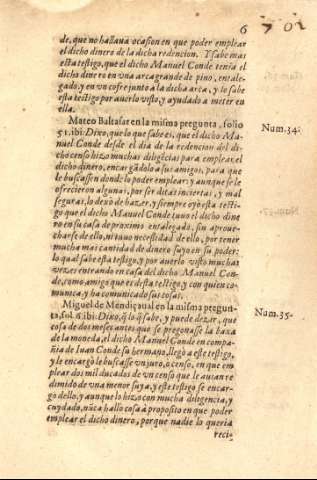 6
701
de, que no hallaua ocasion en que poder emplear
el dicho dinero de la dicha redencion. Y sabe mas
esta testigo, que el dicho Manuel Conde tenia el
dicho dinero en vn arca grande de pino, entale-
gado, y en vn cofre junto a la dicha arca, y lo sabe
esta testigo por auerlo visto, y ayudado a meter en
ella.
Mateo Baltasar en la misma pregunta, folio
51. ibi: Dixo, que lo que sabe es, que el dicho Ma-
nuel Conde desde el dia de la redencion del di-
cho censo hizo muchas diligẽcias para emplear el
dicho dinero, encargãdolo a sus amigos, para que
le buscassen donde lo poder emplear; y aunque se le
ofrecieron algunas, por ser ditas inciertas, y mal
seguras, lo dexò de hazer, y siempre oyò este testi-
go que el dicho Manuel Conde tuuo el dicho dine
ro en su casa de proximo entalegado, sin aproue-
charse de ello, ni tuuo necessidad de ello, por tener
mucha mas cantidad de dinero suyo en su poder:
lo qual sabe esta testigo, por auerlo visto muchas
vezes entrando en casa del dicho Manuel Con-
de, como amigo que es desta testigo, y con quien co-
munica, y ha comunicado sus cosas.
Miguel de Mendiçaual en la misma pregun-
ta, fol. ibi: Dixo, q̃ lo q̃ sabe, y puede dezir, que
cosa de dos meses antes que se pregonasse la baxa
de la moneda, el dicho Manuel Conde en compa-
ñia de Iuan Conde su hermano, llegò a este testigo,
y le encargò le buscasse vn juro, o censo, en que em
plear dos mil ducados de vn censo que le auian re
dimido de vna menor suya, y este testigo se encar-
gò dello, y aunque lo hizo con mucha diligencia, y
cuydado, nũca hallò cosa à proposito en que poder
emplear el dicho dinero, porque nadie lo queria
reci-
Num. 34.
Num. 35.